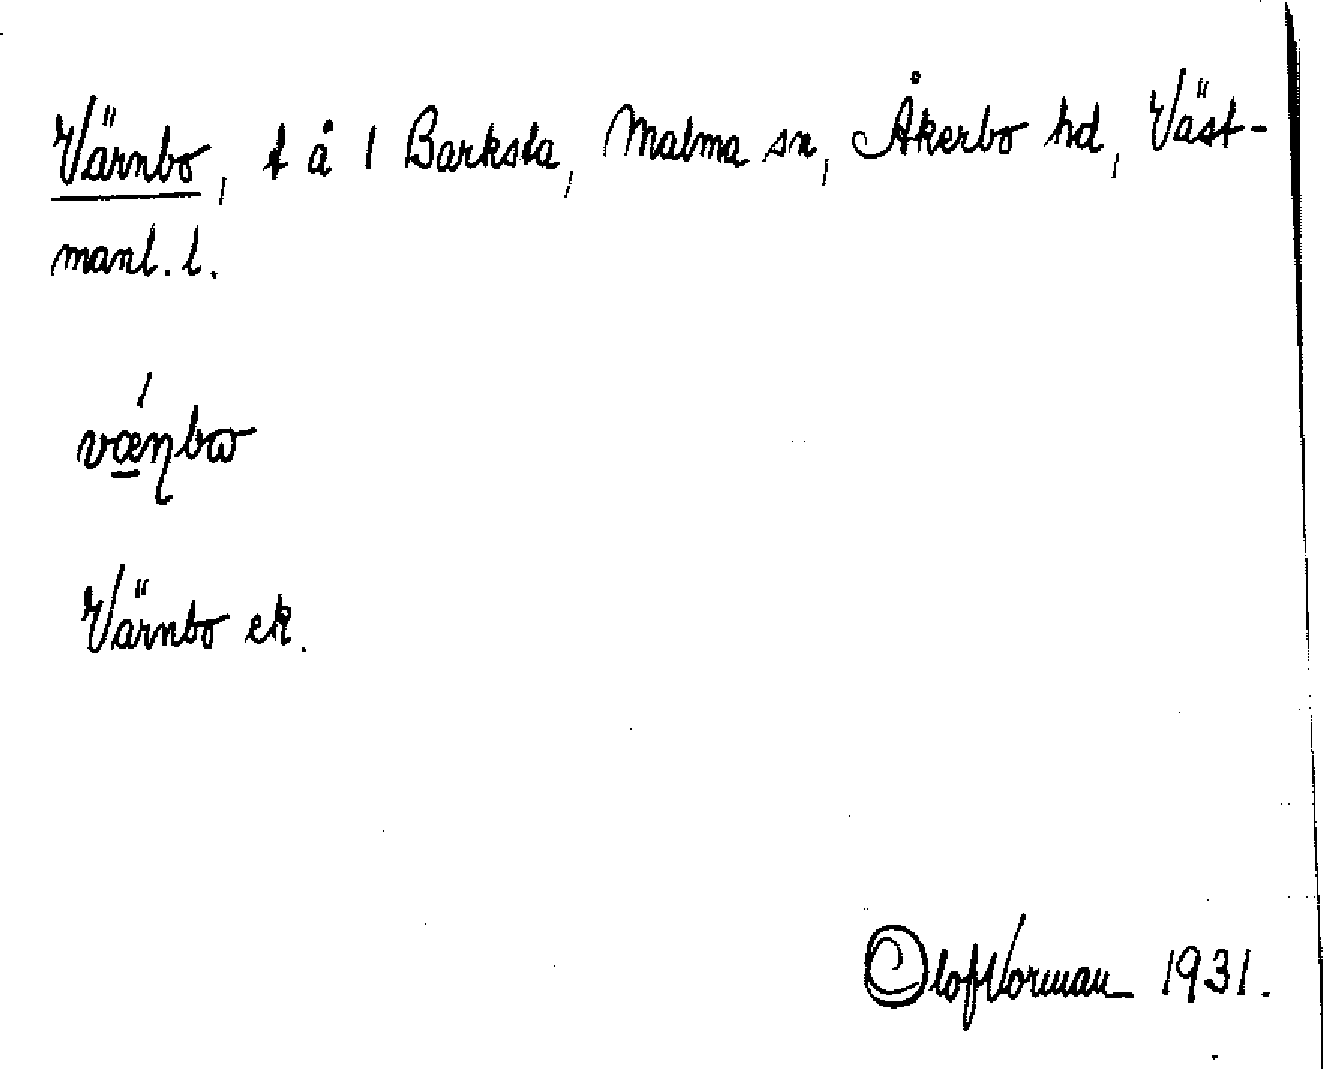 Värnbo, t å 1 Barksta, Malma sn, Åkerbo hd, Väst-
manl. l.
vǽṇbω
Värnbo ek.
Olof Norman 1931.